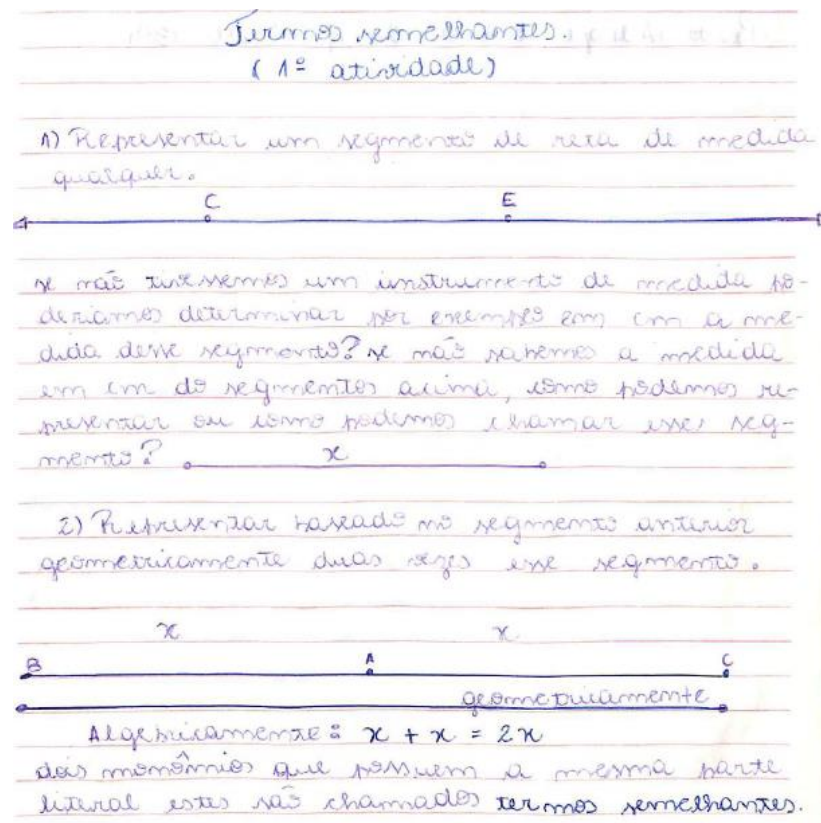 Termos semelhantes.
(1ª atividade)
1) Representar um segmento de reta de medida
qualquer.
C E
se não tivessemos um instrumento de medida po-
deriamos determinar por exemplo em cm a me-
dida desse segmento? se não sabemos a medida
em cm do segmentos acima, como podemos re-
presentar ou como podemos chamar esses seg-
mento? x
2) Representar baseado no segmento anterior
geometricamente duas vezes esse segmento.
x x
B A C
geometricamente
Algebricamente: x + x = 2x
dois monômios que possuem a mesma parte
literal estes são chamados termos semelhantes.